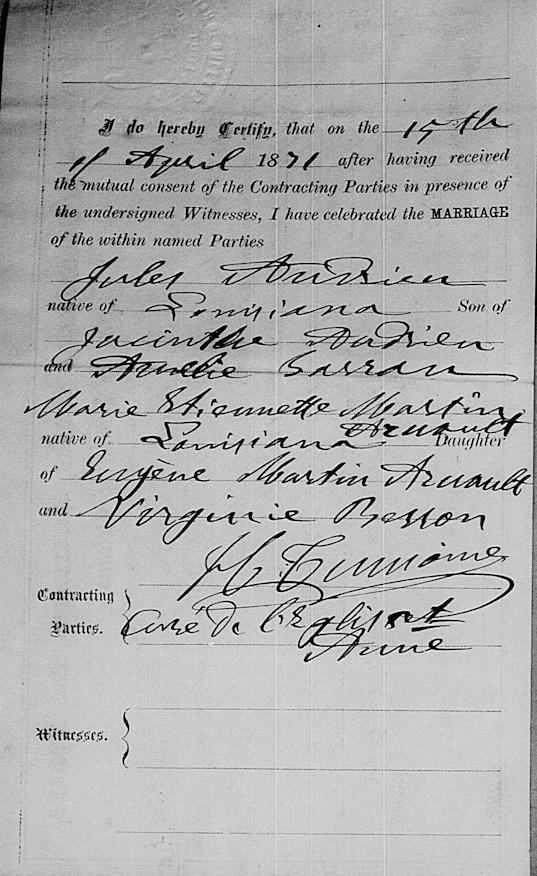 I do hereby Certify, that on the 15th
of April 1871 after having received
the mutual consent of the Contracting Parties in presence of
the undersigned Witnesses, I have celebrated the MARRIAGE
of the within named Parties
Jules Audrieu
native of Louisiana Son of
Jacinthe Audrieu
and Amelie Sarrau
Marie Etiennette Martin
Arnault
native of Louisiana Daughter
of Eugène Martin Arnault
and Virginie Besson
Contracting
Parties.
Curé de l'Eglise St
Anne
Witnesses.